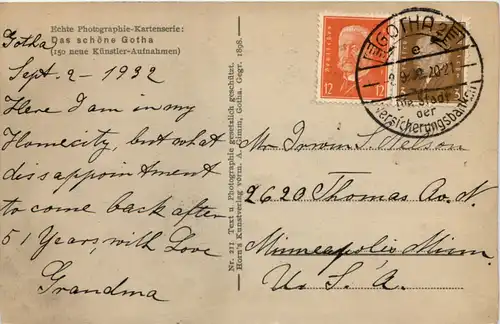 Echte Photographie-Kartenserie:
Das schöne Gotha
(150 neue Künstler-Aufnahmen)
Gotha
Sept. 2 - 1932
Here I am in my
Homecity, but what
dissappointment
to come back after
51 Years, with Love
Grandma
Nr. 211 Text u. Photographie gesetzlich geschützt.
Horn's Kunstverlag vorm. A. Gimm, Gotha. Gegr. 1898.
12
12
GOTHA 2
e
2.9.32.20-21
Die Stadt
der
Versicherungsbanken
Mr Irwin S. Nelson
2620 Thomas Av. N.
Minneapolis Minn.
U. S. A.